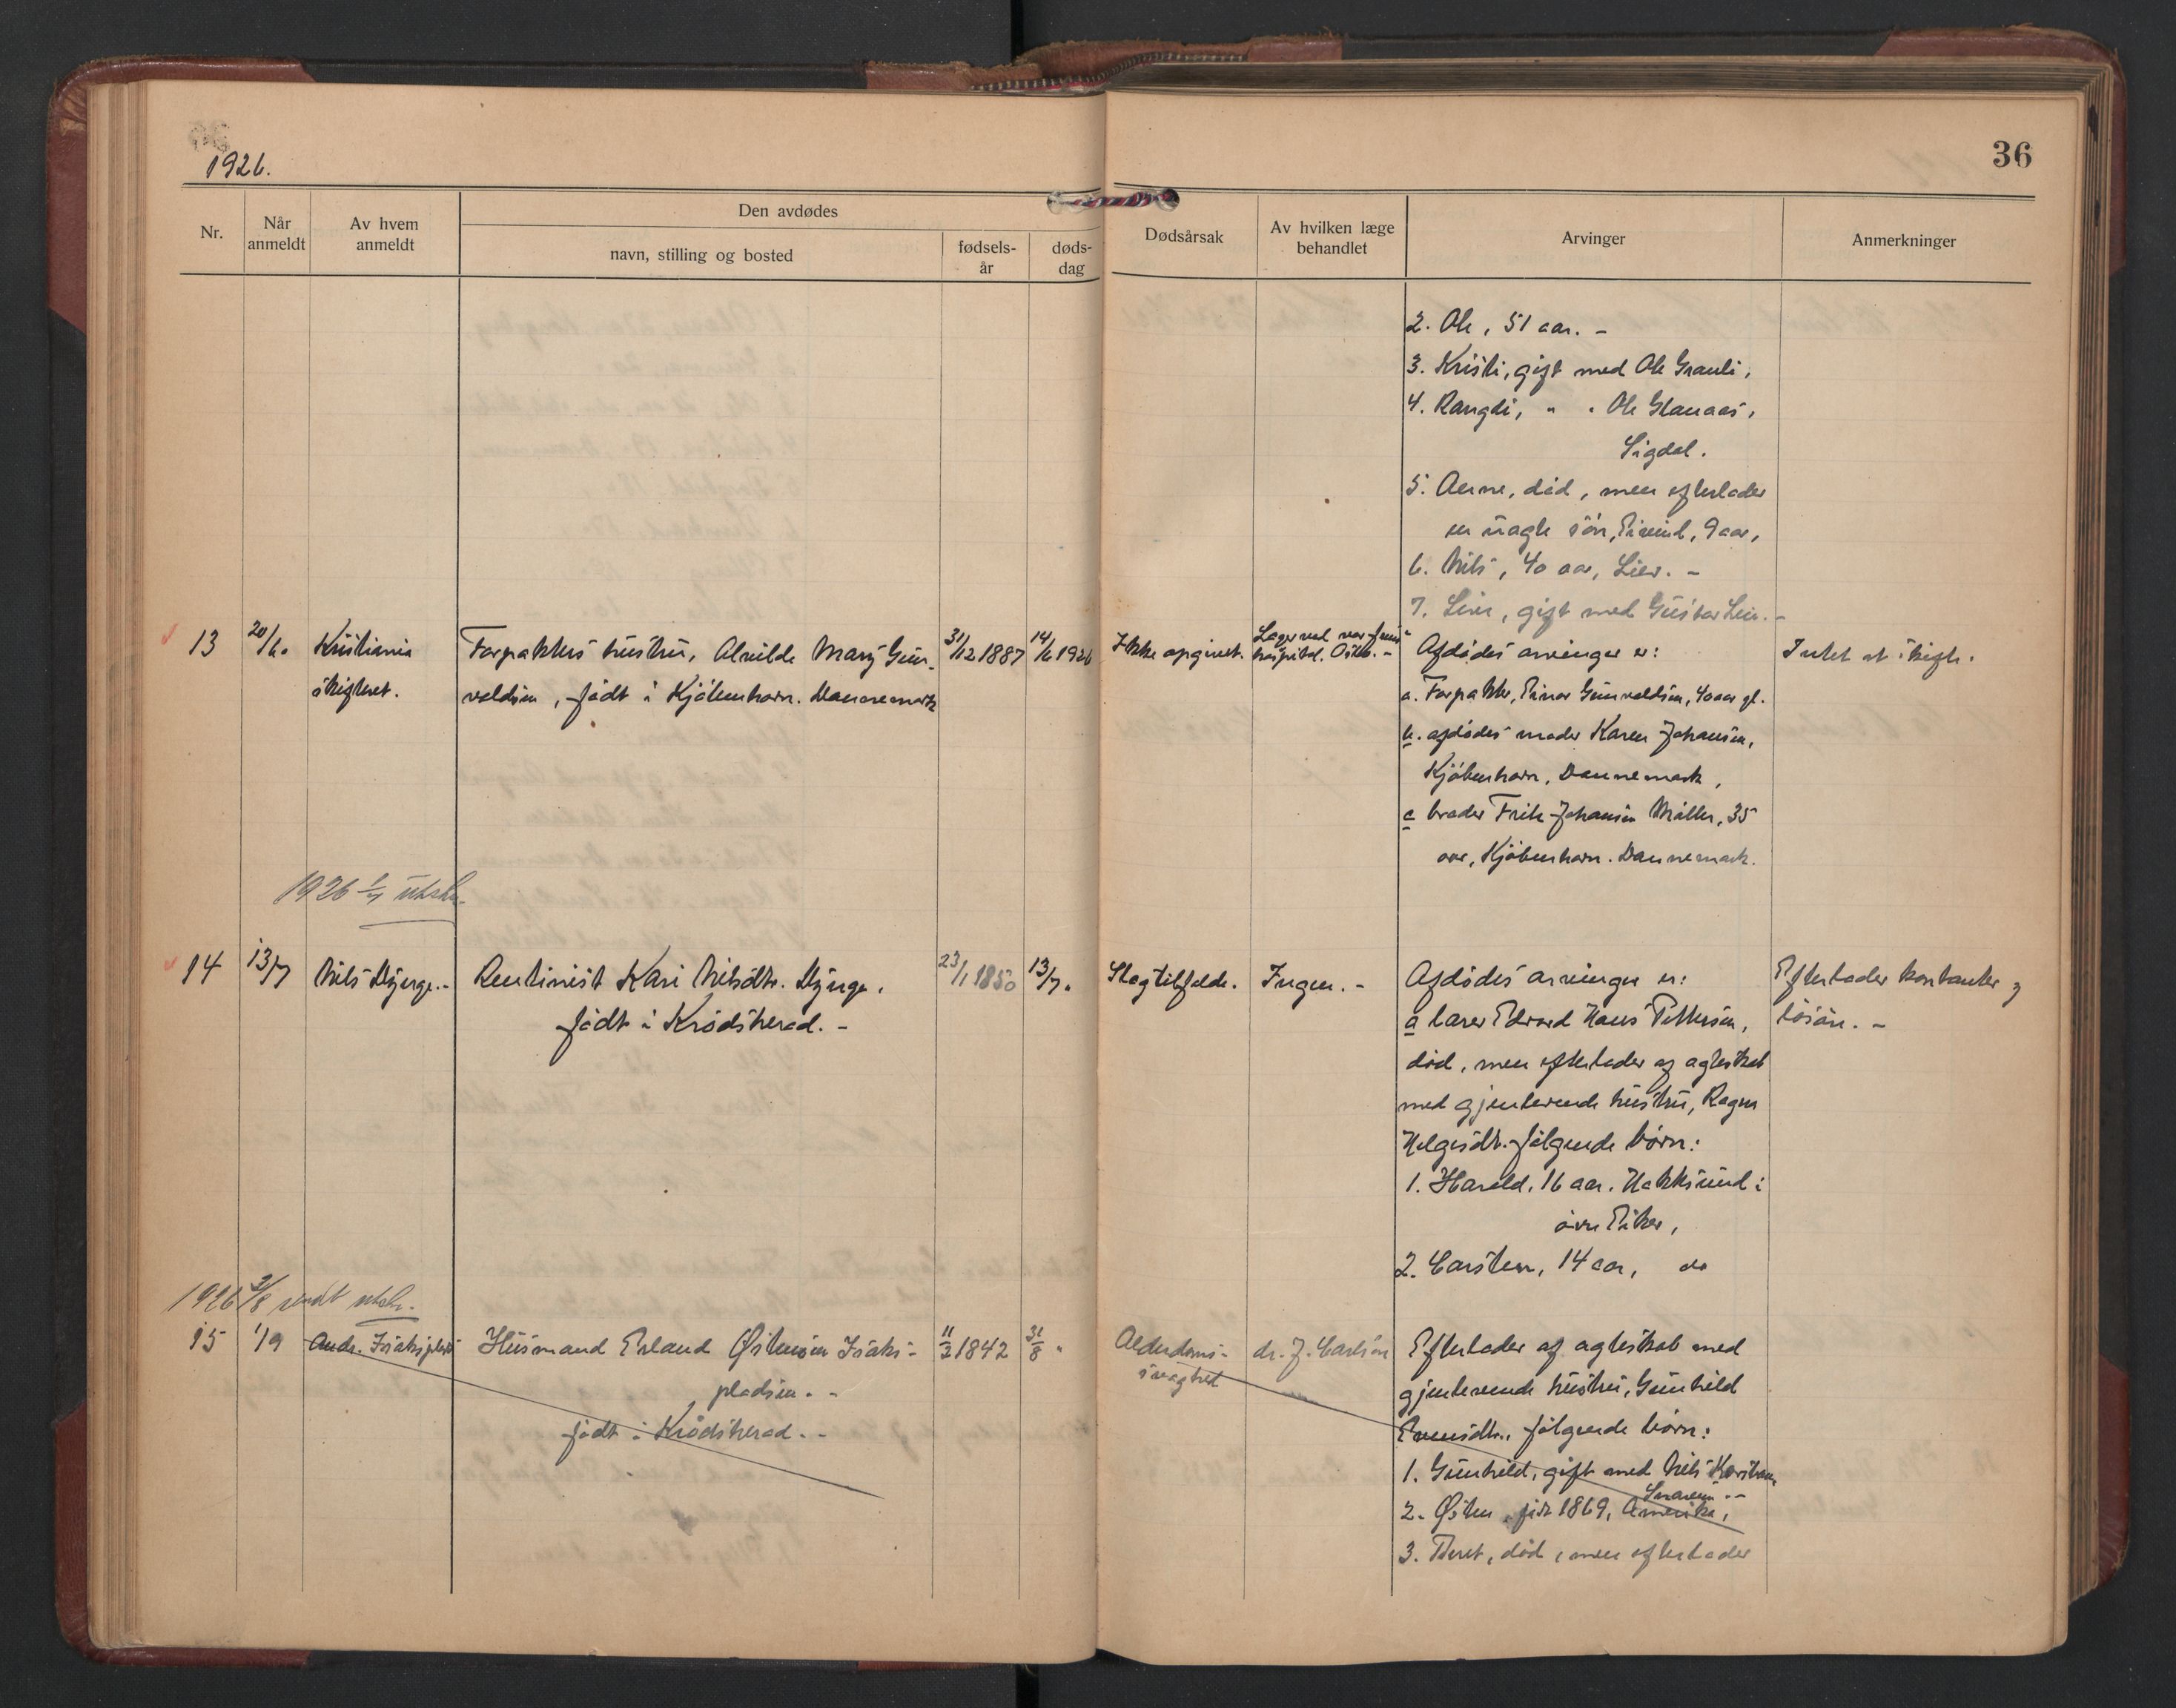 1926.
36
Nr.
Når anmeldt
Av hvem anmeldt
Den avdødes
navn, stilling og bosted
fødsels-år
døds-dag
Dødsårsak
Av hvilken læge behandlet
Arvinger
Anmerkninger
2. Ole, 51 aar. -
3. Kristi, gift med Ole Grauli,
4. Rangdi, " " Ole Glanaas,
Sigdal.
5. Anne, død, men efterlader
en uagte søn, Eivind, 9 aar,
6. Nils, 40 aar, Lier. -
7. Live, gift med Gustav Lein. -
13 20/6. Kristiania Forpakters hustru, Alvilde Mary Gun- 31/12 1887 14/6 1926 Ikke opgivet. Læger ved vor frues Afdødes arvinger er: Intet at skifte.
skifteret. valdsen, født i Kjøbenhavn. Dannemark hospital. Oslo. - a. Forpakter, Einar Gunvaldsen, 40 aar gl.
b. afdødes moder Karen Johansen,
Kjøbenhavn, Dannemark,
c broder Fritz Johansen Møller, 35
aar, Kjøbenhavn. Dannemark.
1926 utskr.
14 13/7 Nils Bjerge. - Rentinist Kari Nilsdtr. Bjerge, 23/1 1850 13/7. Slagtilfælde. Ingen. - Afdødes arvinger er: Efterlader kontanter og
født i Krødsherad. - a lærer Edvard Hans Pettersen, løsøre. -
død, men efterlader af ægteskab
med gjenlevende hustru, Ragna
Helgesdtr. følgende børn:
1. Harald, 16 aar. Hokksund i
øvre Eiker,
2. Carsten, 14 aar, do
1926 2/8 sendt utskr.
15 1/9 Andr. Isaksplads Husmand Erland Østensen Isaks- 11/3 1842 31/8 " Alderdoms- dr. J. Carlsen Efterlader af ægteskab med
pladsen. - svaghed gjenlevende hustru, Gunhild
født i Krødsherad. - Evensdtr., følgende børn:
1. Gunhild, gift med Nils
Snarum. -
2. Østen, født 1869, Amerika,
3. Beret, død, men efterlader